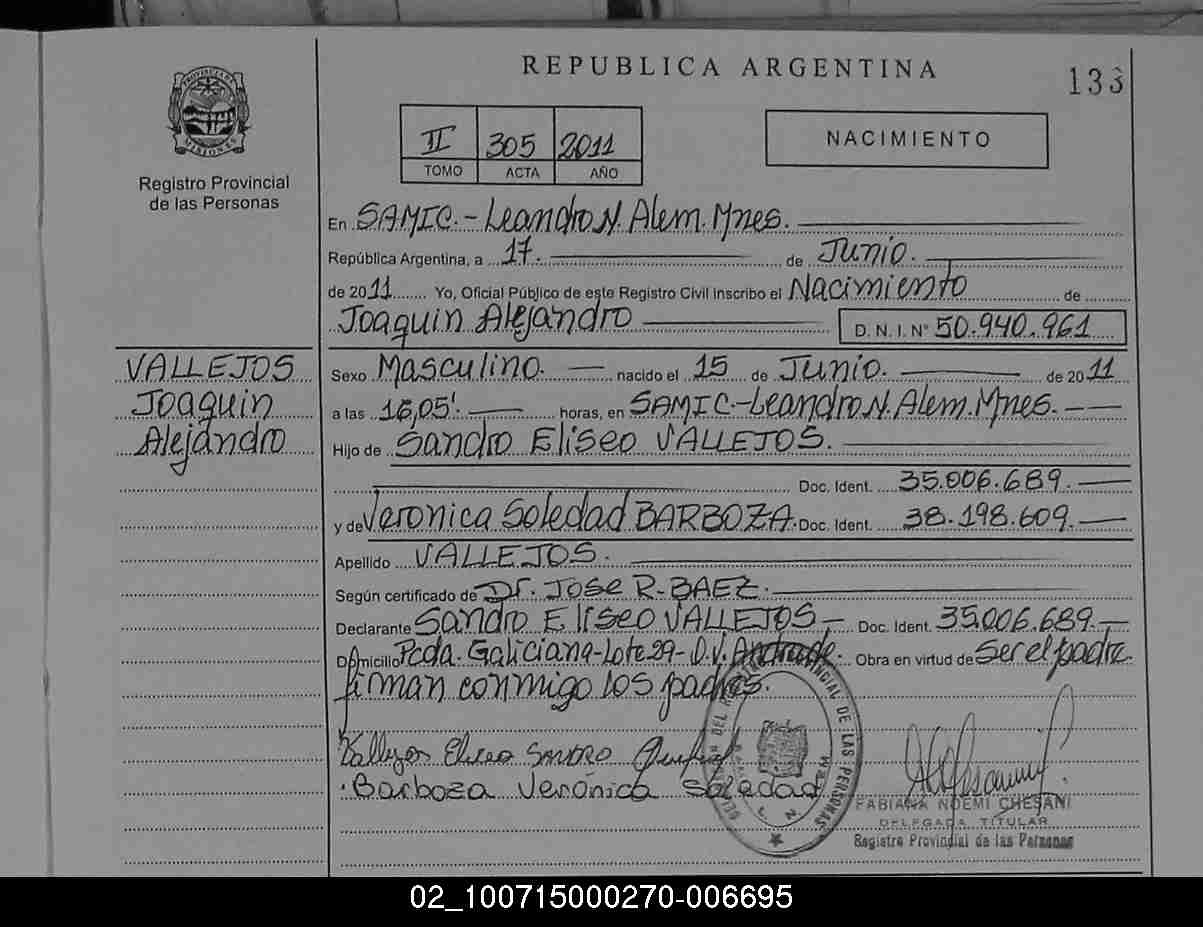 REPUBLICA ARGENTINA
133
PROVINCIA DE
MISIONES
Registro Provincial
de las Personas
II 305 2011
TOMO ACTA AÑO
NACIMIENTO
En SAMIC.- Leandro N. Alem. Mnes.
República Argentina, a 17. de Junio.
de 2011 Yo, Oficial Público de este Registro Civil inscribo el Nacimiento de
Joaquin Alejandro D. N. I. N° 50.940.961
VALLEJOS
Joaquin
Alejandro
Sexo Masculino. nacido el 15 de Junio. de 2011
a las 16,05'. horas, en SAMIC-Leandro N. Alem. Mnes.
Hijo de Sandro Eliseo VALLEJOS.
Doc. Ident. 35.006.689.
y de Veronica Soledad BARBOZA. Doc. Ident. 38.198.609.
Apellido VALLEJOS.
Según certificado de Dr. Jose R. BAEZ.
Declarante Sandro Eliseo VALLEJOS Doc. Ident. 35.006.689.
Domicilio Pcda. Galiciana-Lote 29- O.V. Andrade. Obra en virtud de ser el padre.
firman conmigo los padres.
Vallejos Eliseo SANDRO
Barboza Verónica Soledad
PROVINCIAL DE LAS PERSONAS
FABIANA NOEMI CHESANI
DELEGADA TITULAR
Registro Provincial de las Personas
02_100715000270-006695